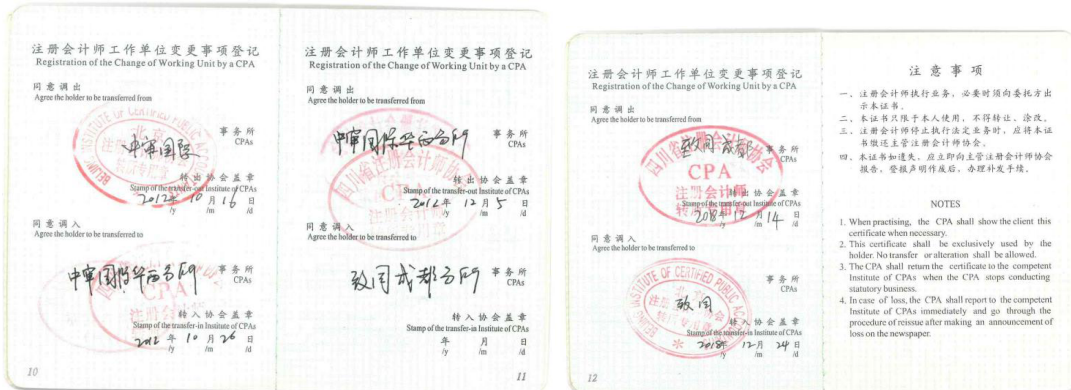 注册会计师工作单位变更事项登记
Registration of the Change of Working Unit by a CPA
同意调出
Agree the holder to be transferred from
中审国际
事务所
CPAs
转出协会盖章
Stamp of the transfer-out Institute of CPAs
2012年 10月 16日
/y /m /d
同意调入
Agree the holder to be transferred to
中审国际华西分所
事务所
CPAs
转入协会盖章
Stamp of the transfer-in Institute of CPAs
2012年 10月 26日
/y /m /d
10
注册会计师工作单位变更事项登记
Registration of the Change of Working Unit by a CPA
同意调出
Agree the holder to be transferred from
中审国际华西分所
事务所
CPAs
四川省注册会计师协会
转出协会盖章
Stamp of the transfer-out Institute of CPAs
2012年 12月 5日
/y /m /d
同意调入
Agree the holder to be transferred to
致同成都分所
事务所
CPAs
转入协会盖章
Stamp of the transfer-in Institute of CPAs
年 月 日
/y /m /d
11
注册会计师工作单位变更事项登记
Registration of the Change of Working Unit by a CPA
同意调出
Agree the holder to be transferred from
四川省注册会计师协会
致同成都
事务所
CPAs
CPA
注册会计师
转出协会盖章
Stamp of the transfer-out Institute of CPAs
2018年 12月 14日
/y /m /d
同意调入
Agree the holder to be transferred to
BEIJING INSTITUTE OF CERTIFIED PUBLIC
致同
事务所
CPAs
转入协会盖章
Stamp of the transfer-in Institute of CPAs
2018年 12月 24日
/y /m /d
12
注意事项
一、注册会计师执行业务，必要时须向委托方出
示本证书。
二、本证书只限于本人使用，不得转让、涂改。
三、注册会计师停止执行法定业务时，应将本证
书缴还主管注册会计师协会。
四、本证书如遗失，应立即向主管注册会计师协会
报告，登报声明作废后，办理补发手续。
NOTES
1. When practising, the CPA shall show the client this
certificate when necessary.
2. This certificate shall be exclusively used by the
holder. No transfer or alteration shall be allowed.
3. The CPA shall return the certificate to the competent
Institute of CPAs when the CPA stops conducting
statutory business.
4. In case of loss, the CPA shall report to the competent
Institute of CPAs immediately and go through the
procedure of reissue after making an announcement of
loss on the newspaper.